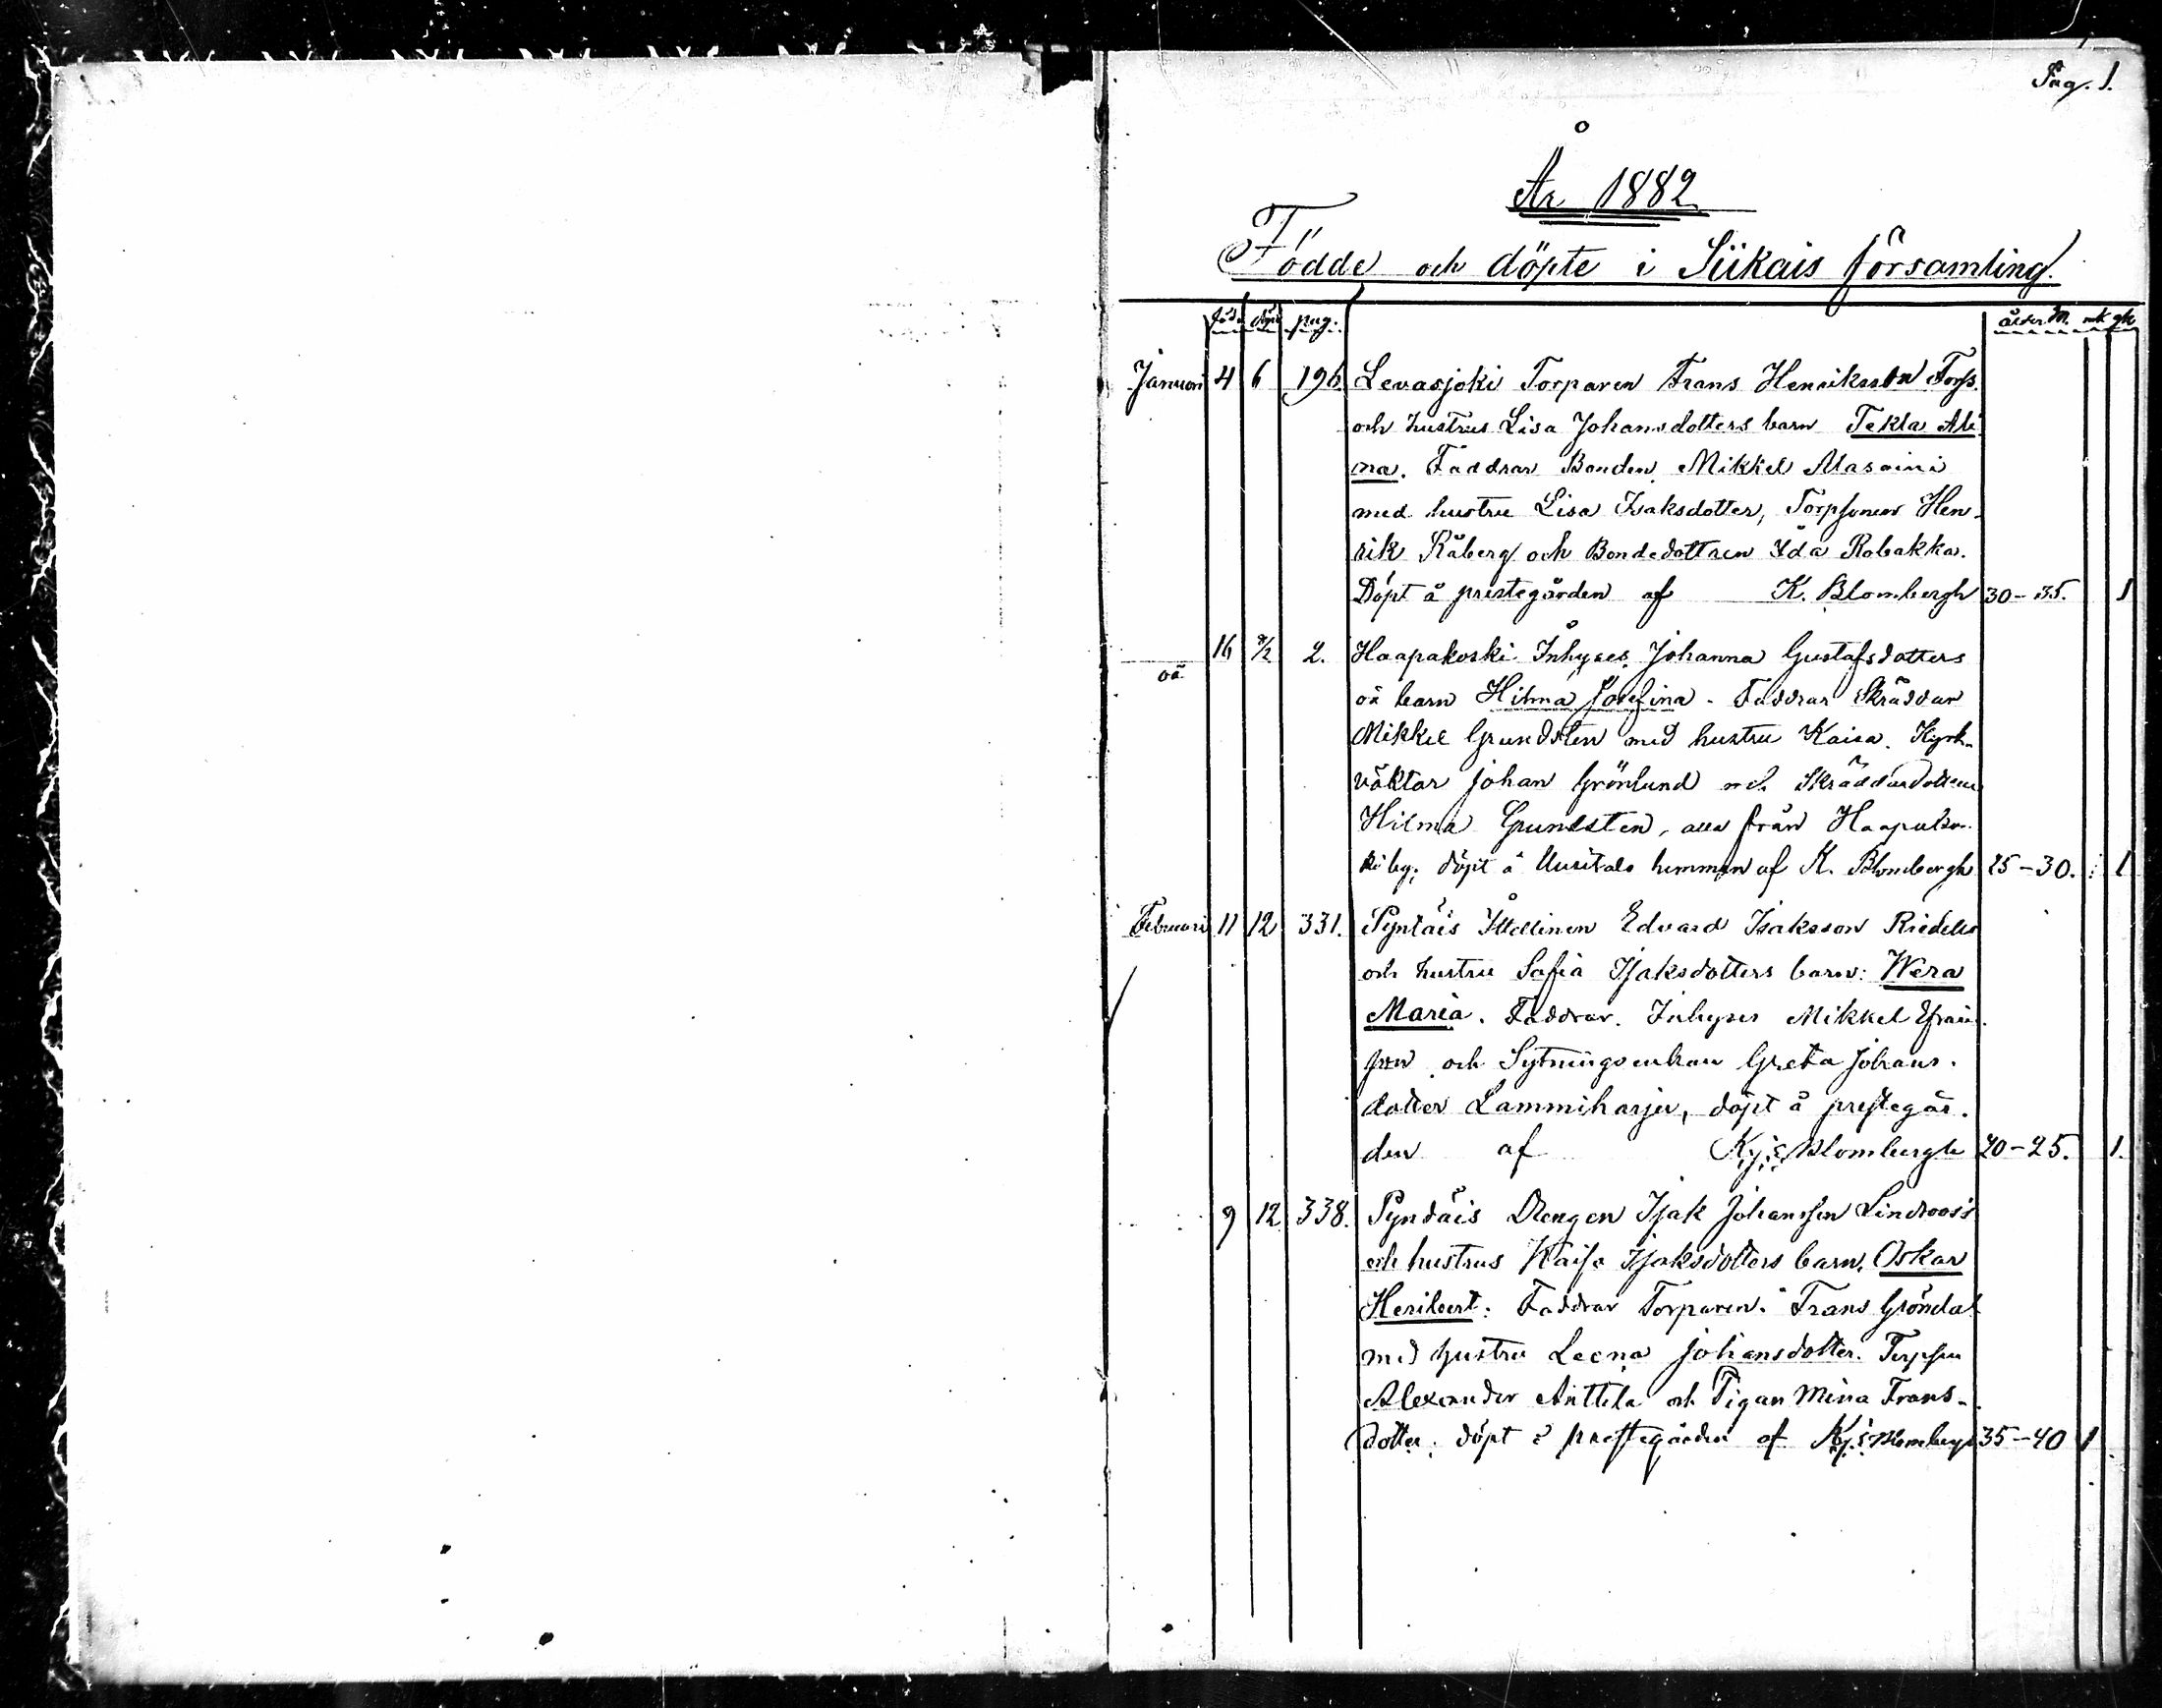 Pag. 1.
År 1882
Födde och döpte i Siikais församling.
född döpt pag: ålder M. mk qk
Januari 4 6 196 Levasjoki Torparen Frans Henriksson Torps
och hustrus Lisa Johansdotters barn Tekla Ali
na. Faddrar Bonden Mikkel Alasaini
med hustru Lisa Isaksdotter, Torpsonen Hen-
rik Råberg och Bondedottren Ida Rabakka.
Döpt å prestegården af K. Blombergh 30-35. 1
16 8/2 2. Haapakoski Inhyses Johanna Gustafsdotters
oä
oä barn Hilma Josefina. Faddrar Skräddar
Mikkel Grundsten med hustru Kaisa. Kyrk-
väktar Johan Grönlund och Skräddardottern
Hilma Grundsten, alla från Haapako-
ski by; döpt å Uusitalo hemman af K. Blombergh 25-30. 1
Februari 11 12 331. Pyntäis Edvard Isaksson
och hustru Sofia Isaksdotters barn: Wera
Maria. Faddrar. Inhyses Mikkel Efraim
son och Sytningsenkan Greta Johans-
dotter Lammiharju, döpt å prestegår-
den af Kj: Blombergh 20-25. 1.
9 12 338. Pyntäis Drengen Isak Johansson Lindroos's
och hustrus Kaisa Isaksdotters barn, Oskar
Heribert. Faddrar Torparen Frans Gröndal
med hustru Leena Johansdotter. Torpson
Alexander Anttila och Pigan Mina Frans-
dotter; döpt å prestegården af Kj: Blombergh 35-40 1